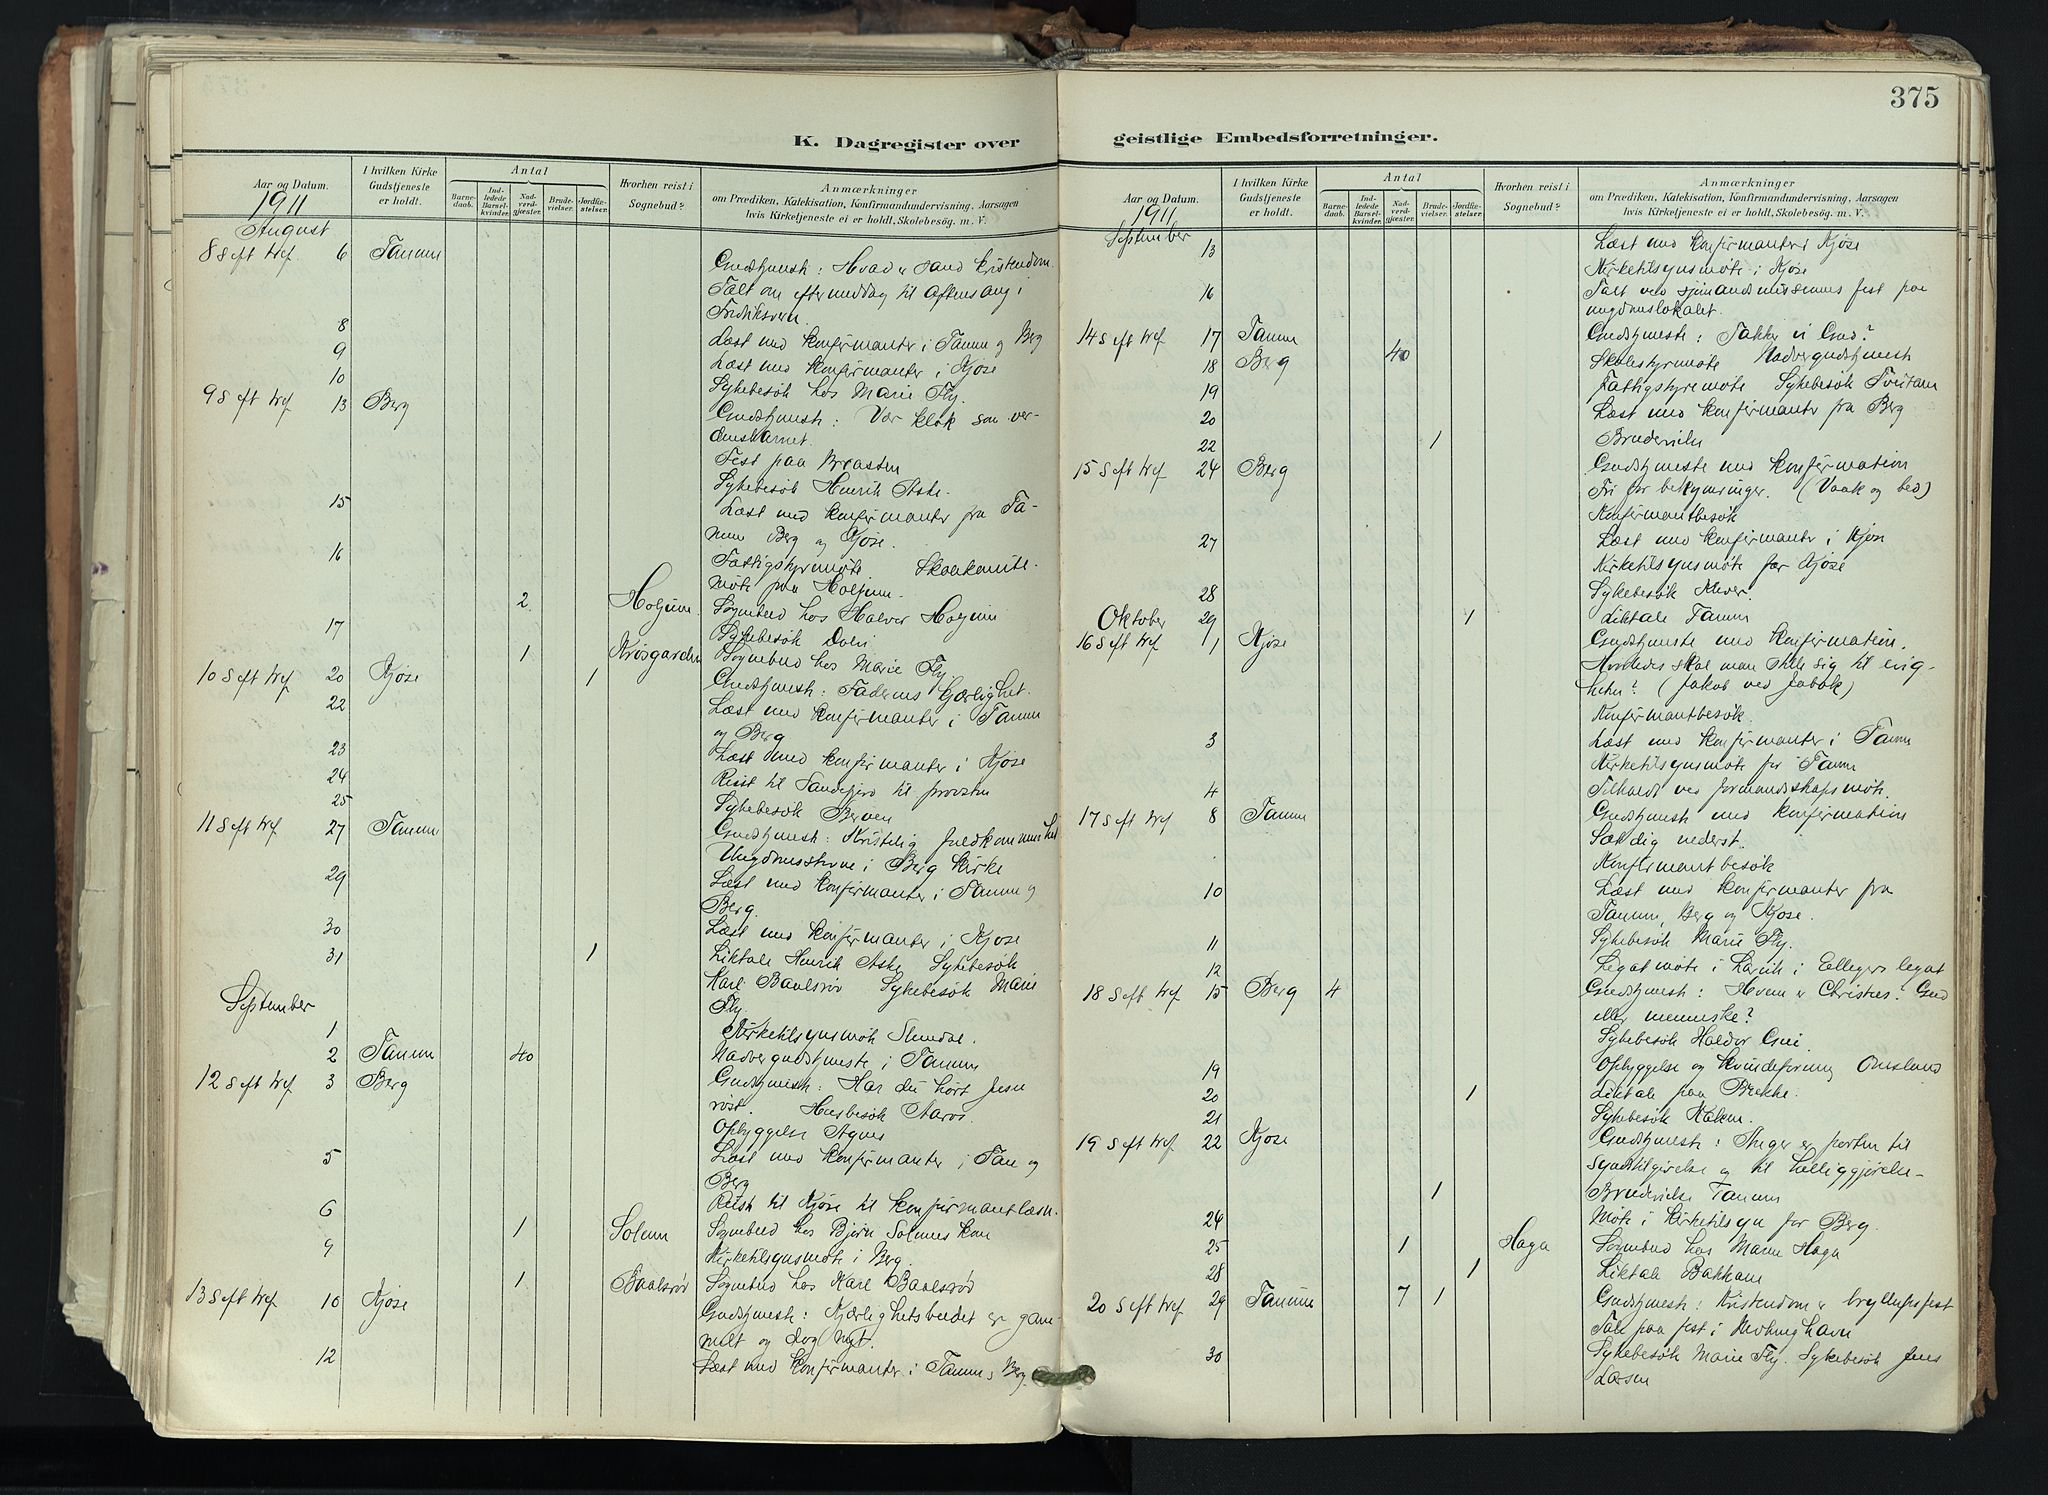 375
K. Dagregister over
Aar og Datum.
1911
I hvilken Kirke
Gudstjeneste
er holdt.
Antal
Barne-
daab.
Ind-
ledede
Barsel-
kvinder.
Nad-
verd-
gjæster.
Brude-
vielser.
Jordfæ-
stelser.
Hvorhen reist i
Sognebud?
Anmærkninger
om Prædiken, Katekisation, Konfirmandundervisning, Aarsagen
hvis Kirketjeneste ei er holdt, Skolebesög. m. V.
August
8 s eft tref 6 Tanum Gudstjenest: Hvad er sand kristendom.
Talt om eftermiddag til Aftensang i
Fredriksvern.
8 Læst med konfirmanter i Tanum og Berg
9 Læst med konfirmanter i Kjøse
10 Sykebesøk hos Marie Fly.
9 S eft tref 13 Berg Gudstjenest: Vær klok som ver-
densbarnet.
Fest paa
Sykebesøk Henrik Aske.
15 Læst med konfirmanter fra Ta-
num Berg og Kjøse.
16 Fattigstyremøte
møte paa Holjum.
2 Holjum Sognebud hos Halvor Holjum
17 Sykebesøk
1 Krosgarden Sognebud hos Marie Fly
10 S eft tref 20 Kjøse 1 Gudstjenest: Faderens kjærlighet.
22 Læst med konfirmanter i Tanum
og Berg
23 Læst med konfirmanter i Kjøse
24 Reist til Sandefjord til provsten
25 Sykebesøk Berven
11 S eft tref 27 Tanum Gudstjenest: Kristelig fuldkommenhet
Ungdomsstevne i Berg kirke
29 Læst med konfirmanter i Tanum og
Berg.
30 Læst med konfirmanter i Kjøse
31 1 Liktale Henrik Aske Sykebesøk
Karl Baalsrød Sykebesøk Marie
Fly.
September
1 Kirketilsynsmøte
2 Tanum 40 Nadvergudstjeneste i Tanum
12 S eft tref 3 Berg Gudstjenest: Har du hørt Jesu
røst. Husbesøk Aaros.
Opbyggelse Agnes
5 Læst med konfirmanter i Tan og
Berg
6 Reist til Kjøse til konfirmantlæsn.
1 Solum Sognebud hos Bjørn Solums kone
9 Kirketilsynsmøte i Berg.
1 Baalsrød Sognebud hos Karl Baalsrød
13 S eft tref 10 Kjøse Gudstjenest: Kjærlighetsbudet er gam-
melt og dog nyt.
12 Læst med konfirmanter i Tanum, Berg.
geistlige Embedsforretninger.
Aar og Datum.
1911
I hvilken Kirke
Gudstjeneste
er holdt.
Antal
Barne-
daab.
Ind-
ledede
Barsel-
kvinder.
Nad-
verd-
gjæster.
Brude-
vielser.
Jordfæ-
stelser.
Hvorhen reist i
Sognebud?
Anmærkninger
om Prædiken, Katekisation, Konfirmandundervisning, Aarsagen
hvis Kirketjeneste ei er holdt, Skolebesög. m. V.
September
13 Læst med konfirmanter i Kjøse
Kirketilsynsmøte i Kjøse
16 Talt ved sjømandsmissionens fest paa
ungdomslokalet.
14 S eft tref 17 Tanum Gudstjeneste: Takker vi Gud?
18 Berg 40 Skolestyrmøte Nadvergudstjenest
19 Fattigstyremøte Sykebesøk
20 Læst med konfirmanter fra Berg
22 1 Brudevielse
15 S eft tref 24 Berg Gudstjeneste med konfirmation
Fri for bekymringer. (Vaak og bed)
Konfirmantbesøk
27 Læst med konfirmanter i Kjøse
Kirketilsynsmøte for Kjøse
28 Sykebesøk
Oktober 29 1 Liktale Tanum
16 S eft tref 1 Kjøse Gudstjeneste med konfirmation.
Hvorledes skal man stille sig til evig-
heten? (Jakob ved Jabok)
Konfirmantbesøk.
3 Læst med konfirmanter i Tanum
Kirketilsynsmøte for Tanum
4 Tilkaldt ved formandsskapsmøte.
17 S eft tref 8 Tanum Gudstjenest med konfirmation
Sæt dig nederst.
Konfirmantbesøk
10 Læst med konfirmanter fra
Tanum, Berg og Kjøse.
11 Sykebesøk Marie Fly.
12 Legatmøte i Larvik i Ellegers legat
18 S eft tref 15 Berg 4 Gudstjenest: Hvem er Christus? Gud
eller menneske?
Sykebesøk Haldor
19 Opbyggelse og kvindeforening Omsland
20 1 Liktale paa Brekke.
21 Sykebesøk
19 S eft tref 22 Kjøse Gudstjenest: Anger er porten til
syndstilgivelse og til helliggjørelse.
1 Brudevielse Tanum
24 Møte i kirketilsyn for Berg.
25 1 Haga Sognebud hos Maren Haga
28 1 Liktale Bakkane
20 S eft tref 29 Tanum 7 1 Gudstjenest: Kristendom er bryllupsfest
Tale paa fest i
30 Sykebesøk Marie Fly. Sykebesøk Jens
Larsen